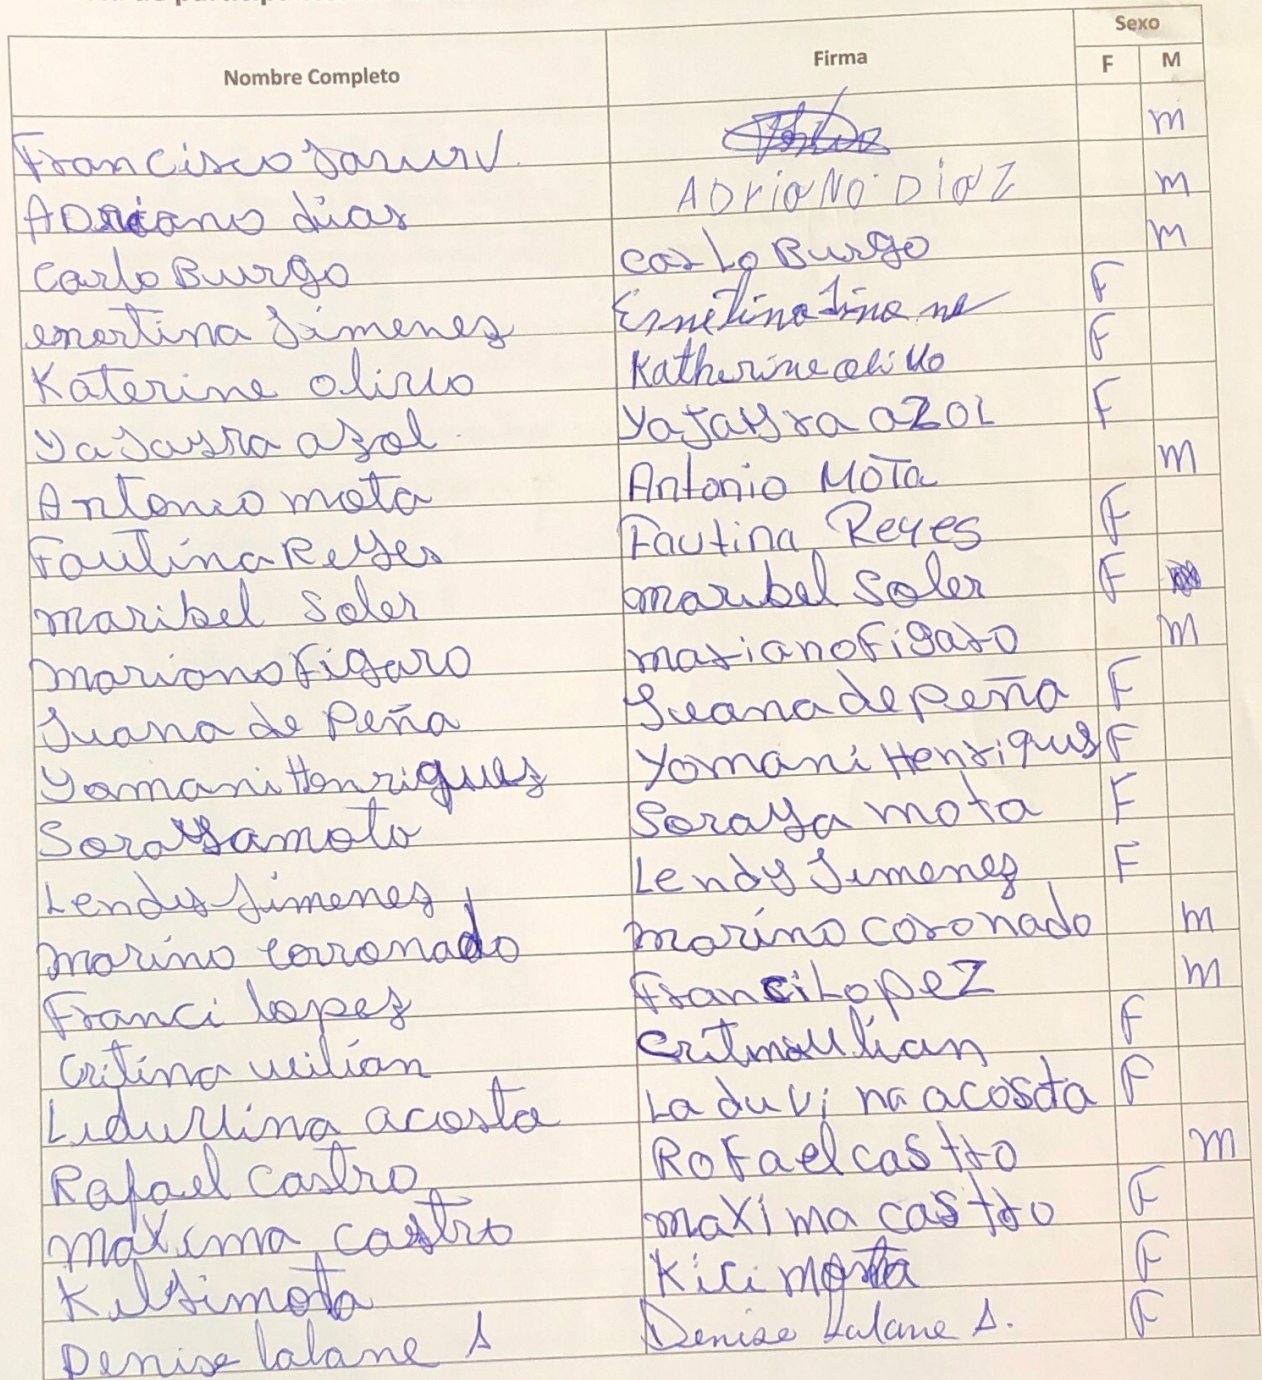 Sexo
Nombre Completo Firma F M
Francisco m
Adriano dias ADriaNo Diaz m
Carlo Burgo Carlo Burgo m
enertina Jimenez F
Katerine olivo Katherine olivo F
yajasra azol yajayra azol F
Antonio mota Antonio Mota m
Fautina Reyes Fautina Reyes F
maribel Soler maribel Soler F
mariano Figaro mariano Figaro m
Juana de Peña Juana de peña F
Yomani Henriquez Yomani Henriques F
Soraya mota Soraya mota F
Lendy Jimenez Lendy Jimenez F
marino corronado marino coronado m
Franci lopez Franci Lopez m
Critina F
acosta La du vi na acosta F
Rafael Castro Rafael castro m
maxima castro maxima castro F
mota Kici mota F
Denise lalane A Denise Lalane A. F